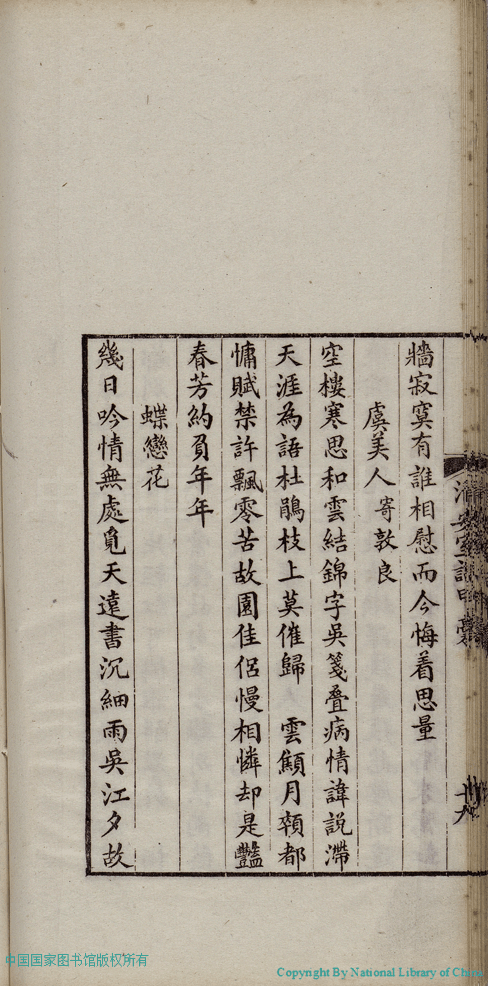 牆寂寞有誰相慰而今悔着思量
虞美人 寄敦良
空樓寒思和雲結錦字吳箋叠病情諱說滯
天涯為語杜鵑枝上莫催歸 雲顦月顇都
慵賦禁許飄零苦故園佳侶慢相憐却是豔
春芳約負年年
蝶戀花
幾日吟情無處覓天遠書沉細雨吳江夕故
中国国家图书馆版权所有
Copyright By National Library of China